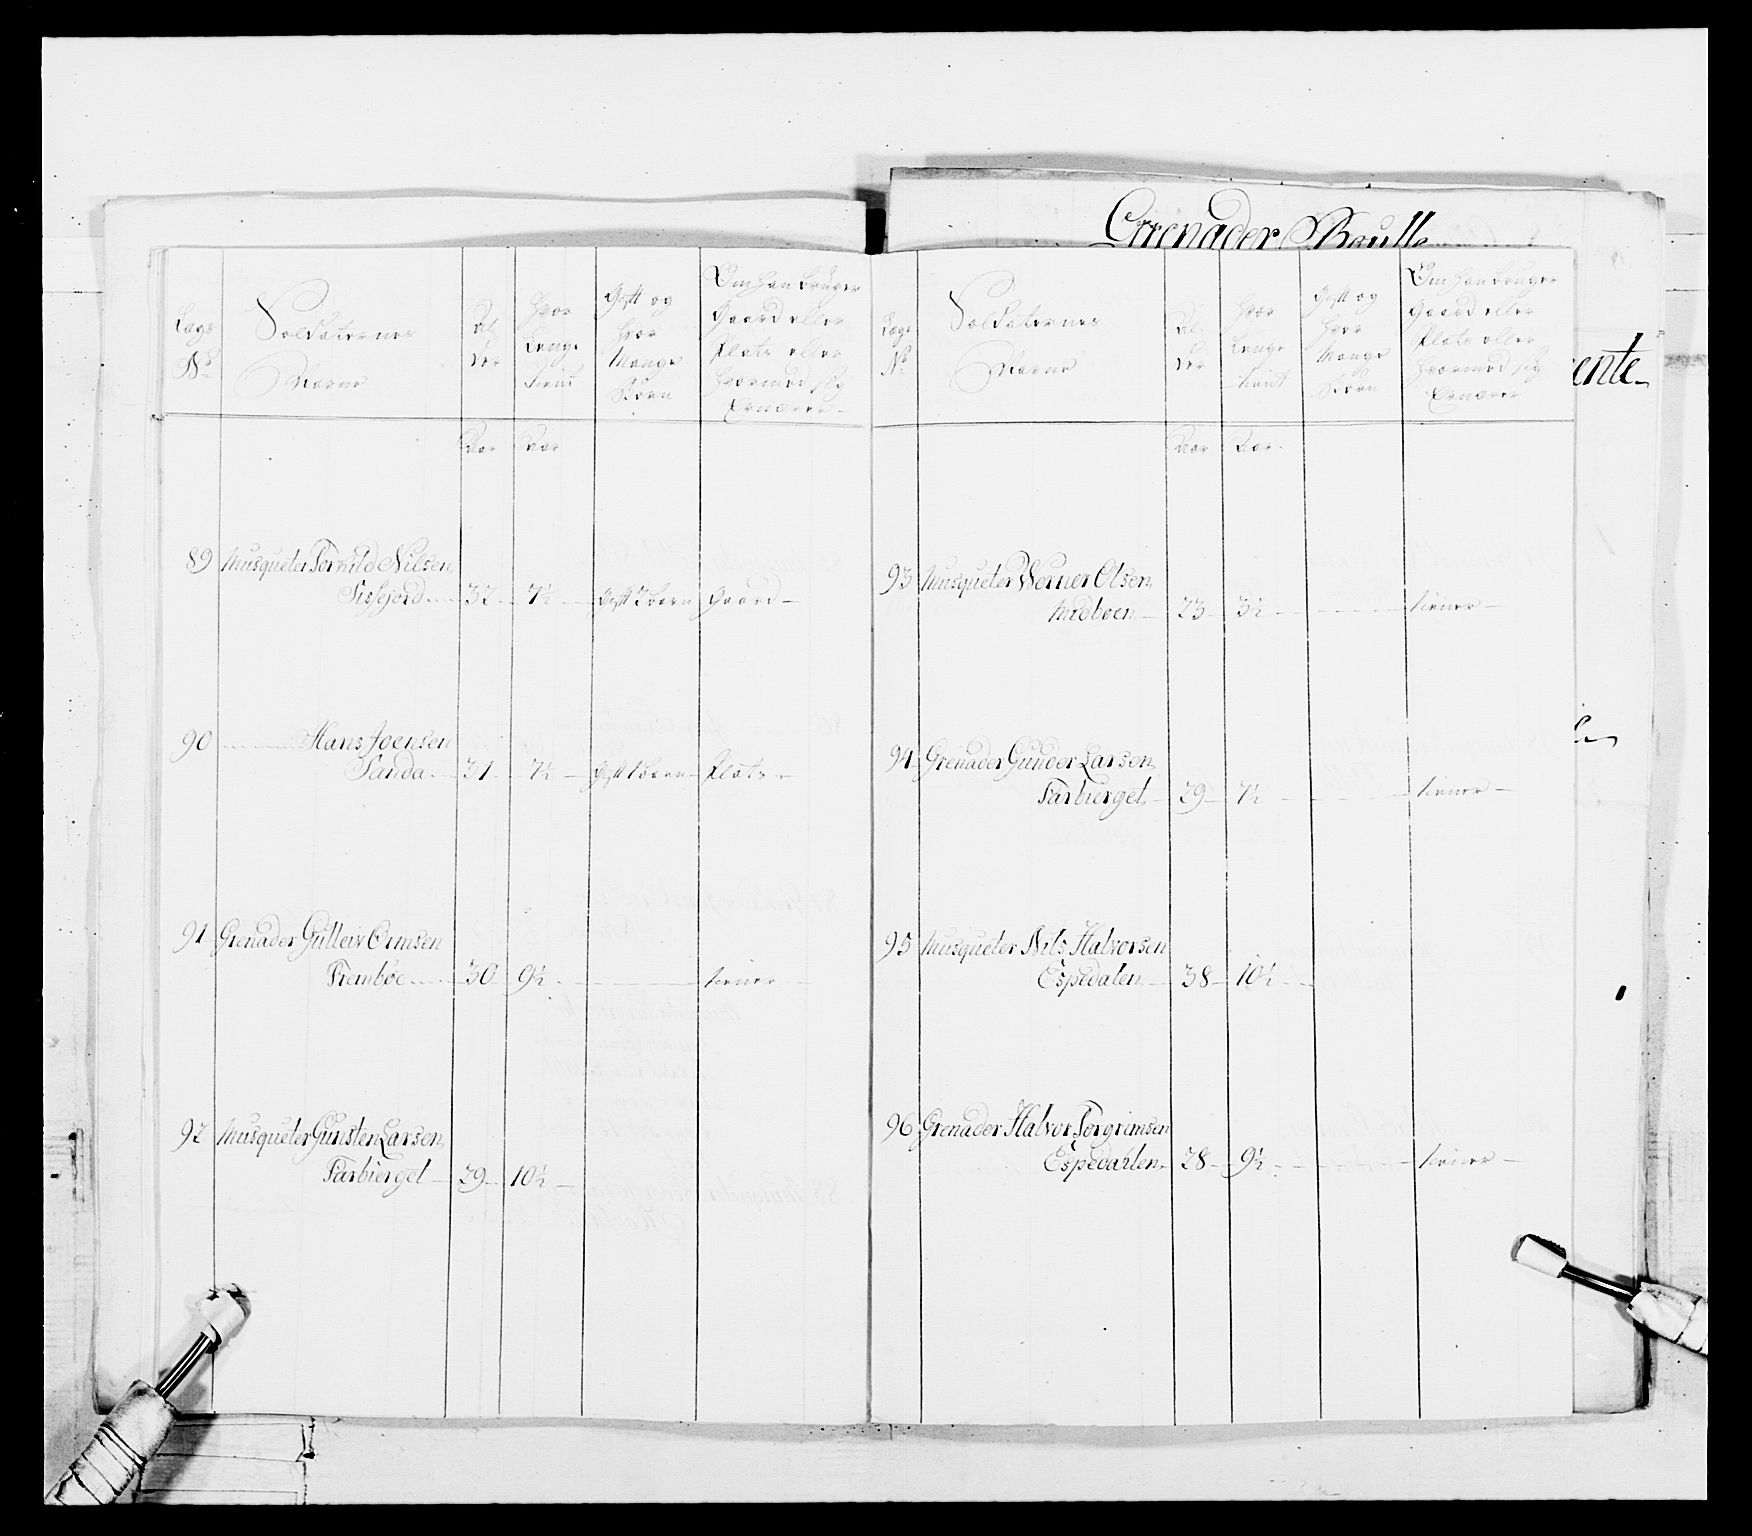 Grenader Roulle
ente
Lægs No
Soldaternes Navne
Al-der
Hvor Længe tient
Gift og hvor Mange Børn
Om han bruger Gaard eller Plats eller hvormed sig Ernærer
Aar Aar
89 Musqueter Torkild Nilsen
Sissejord 32 7½ Gift 2 børn Gaard
90 Hans Joensen
Sanda 31 7½ Gift 1 barn Plats
91 Grenader Gulleiv Ormsen
Tremboe 30 9½ tiener
92 Musqueter Gunsten Larsen
Tarbierget 29 10½
Lægs No
Soldaternes Navne
Al-der
Hvor Længe tient
Gift og hvor Mange Børn
Om han bruger Gaard eller Plats eller hvormed sig Ernærer
Aar Aar
93 Musqueter Werner Olsen
Midboen 23 3½ tiener
94 Grenader Gunder Larsen
Tarbierget 29 7½ tiener
95 Musqueter Nils Halvorsen
Espedalen 38 10½
96 Grenader Halvor Torgrimsen
Espedahlen 28 9½ tiener